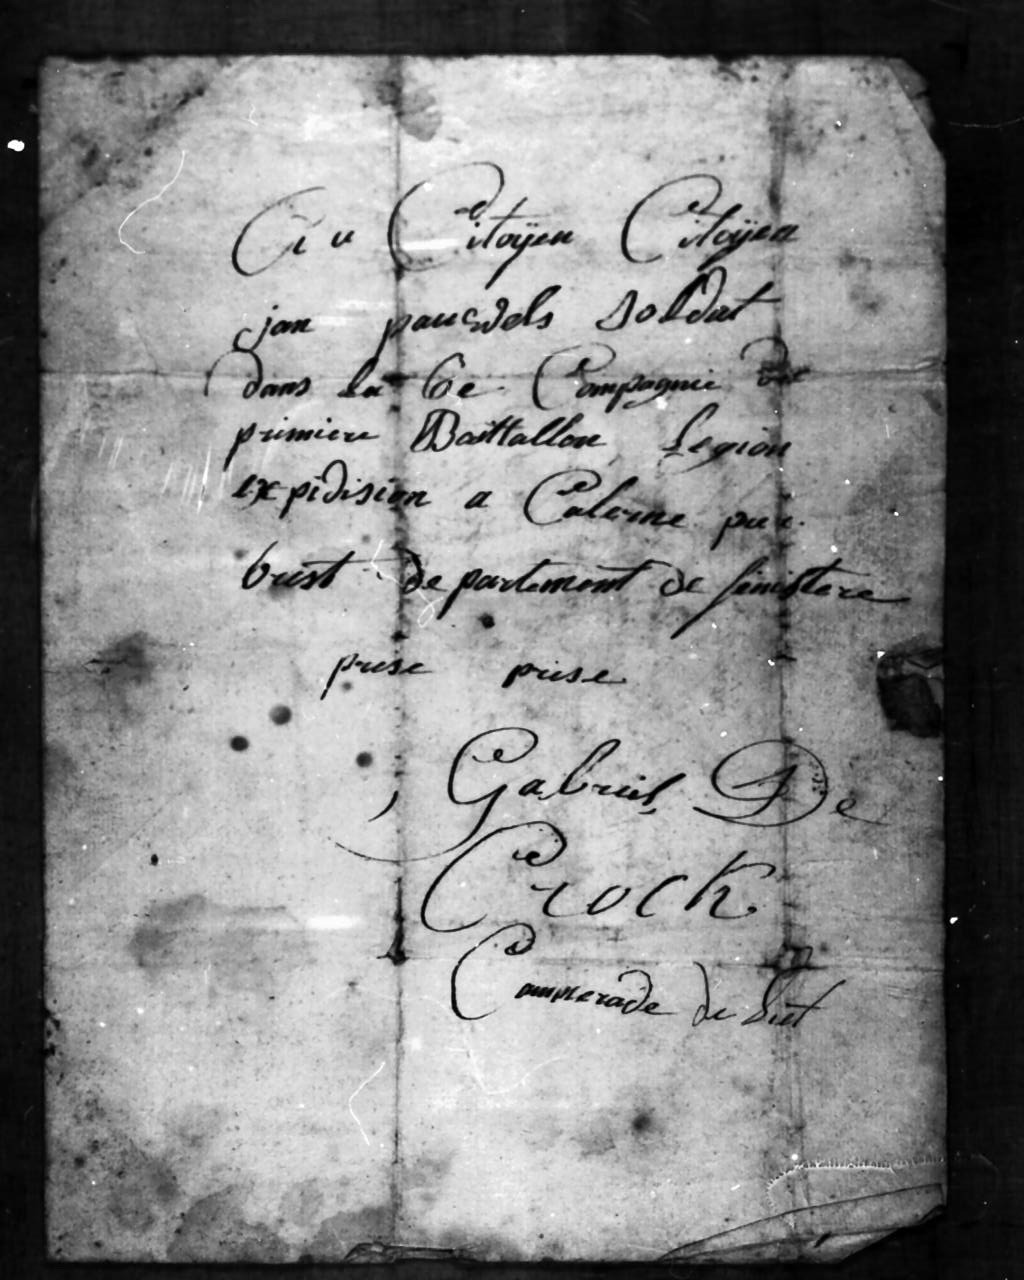 Au Citoÿen Citoÿen
jan pauwels Soldat
dans la 6e Compagnie de
primiere Basttallon Legion
expidision a Caserne pre
brest departement de finistere
prese prise
Gabriel De
Crock
Camerade de Lit